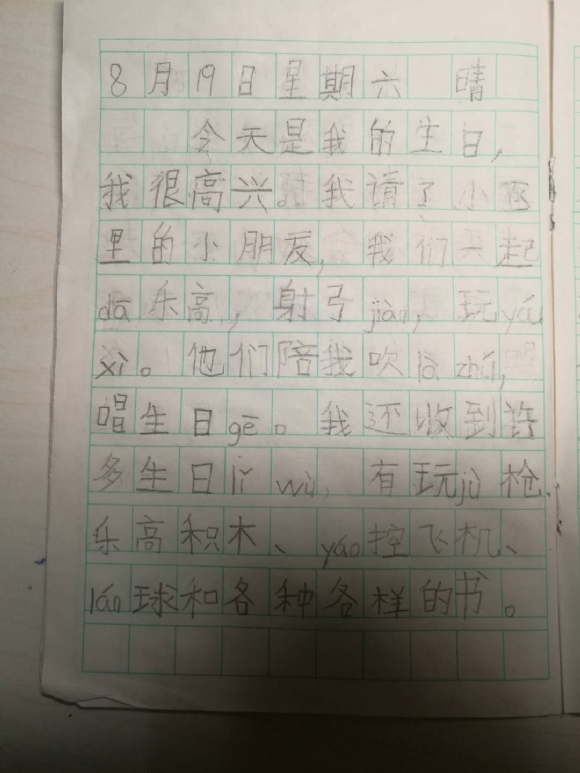 8月19日星期六 晴
今天是我的生日,
我很高兴。我请了小区
里的小朋友,我们一起
dā乐高,射弓jiàn,玩yóu
xì。他们陪我吹là zhú,
唱生日gē。我还收到许
多生日lǐ wù,有玩jù枪、
乐高积木、yáo控飞机、
lán球和各种各样的书。